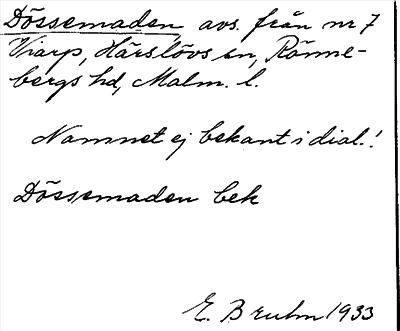 Dössemaden avs. från nr 7
Viarp, Härslövs sn, Rönne-
bergs hd, Malm. l.
Namnet ej bekant i dial.!
Dössemaden bek
E. Bruhn 1933